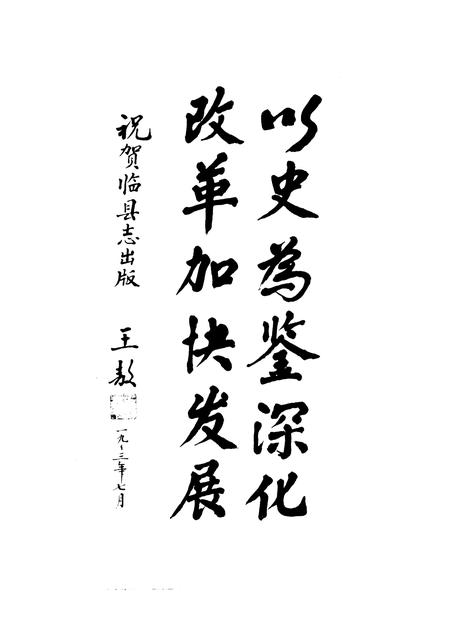 以史為鉴深化
改革加快发展
祝贺临县志出版
王敖
一九九三年七月